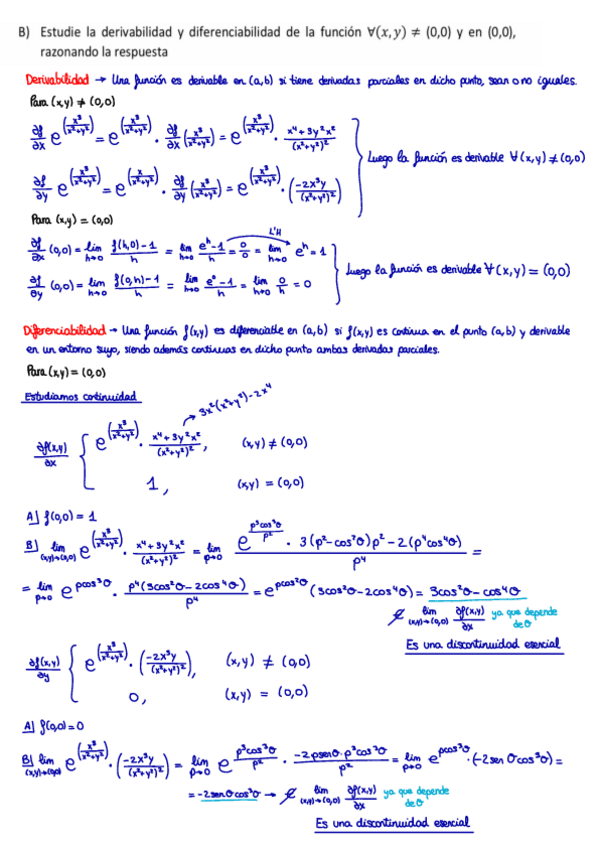 B) Estudie la derivabilidad y diferenciabilidad de la función ∀(x,y) ≠ (0,0) y en (0,0),
razonando la respuesta
Derivabilidad → Una función es derivable en (a,b) si tiene derivadas parciales en dicho punto, sean o no iguales.
Para (x,y) ≠ (0,0)
∂f/∂x e^(x³/(x²+y²)) = e^(x³/(x²+y²)) · ∂f/∂x (x³/(x²+y²)) = e^(x³/(x²+y²)) · (x⁴+3y²x²)/(x²+y²)²
Luego la función es derivable ∀(x,y) ≠ (0,0)
∂f/∂y e^(x³/(x²+y²)) = e^(x/(x²+y²)) · ∂f/∂y (x³/(x²+y²)) = e^(x³/(x²+y²)) · (-2x³y/(x²+y²)²)
Para (x,y) = (0,0)
L'H
∂f/∂x (0,0) = lim h→0 (f(h,0)-1)/h = lim h→0 (e^h-1)/h = 0/0 = lim h→0 e^h = 1
Luego la función es derivable ∀(x,y) = (0,0)
∂f/∂y (0,0) = lim h→0 (f(0,h)-1)/h = lim h→0 (e⁰-1)/h = lim h→0 0/h = 0
Diferenciabilidad → Una función f(x,y) es diferenciable en (a,b) si f(x,y) es continua en el punto (a,b) y derivable
en un entorno suyo, siendo además continuas en dicho punto ambas derivadas parciales.
Para (x,y) = (0,0)
Estudiamos continuidad
3x²(x²+y²)-2x⁴
∂f(x,y)/∂x { e^(x³/(x²+y²)) · (x⁴+3y²x²)/(x²+y²)², (x,y) ≠ (0,0)
1, (x,y) = (0,0)
A] f(0,0) = 1
B] lim (x,y)→(0,0) e^(x³/(x²+y²)) · (x⁴+3y²x²)/(x²+y²)² = lim ρ→0 (e^(ρ³cos³θ/ρ²) · 3(ρ²·cos²θ)ρ² - 2(ρ⁴cos⁴θ))/ρ⁴ =
= lim ρ→0 e^(ρcos³θ) · ρ⁴(3cos²θ-2cos⁴θ)/ρ⁴ = e^(ρcos³θ) (3cos²θ-2cos⁴θ) = 3cos²θ-cos⁴θ
∄ lim (x,y)→(0,0) ∂f(x,y)/∂x ya que depende
de θ
Es una discontinuidad esencial
∂f(x,y)/∂y { e^(x³/(x²+y²)) · (-2x³y/(x²+y²)²), (x,y) ≠ (0,0)
0, (x,y) = (0,0)
A] f(0,0) = 0
B] lim (x,y)→(0,0) e^(x³/(x²+y²)) · (-2x³y/(x²+y²)²) = lim ρ→0 e^(ρ³cos³θ/ρ²) · (-2ρsenθ·ρ³cos³θ)/ρ² = lim ρ→0 e^(ρcos³θ) · (-2senθcos³θ) =
= -2senθcos³θ → ∄ lim (x,y)→(0,0) ∂f(x,y)/∂x ya que depende
de θ
Es una discontinuidad esencial